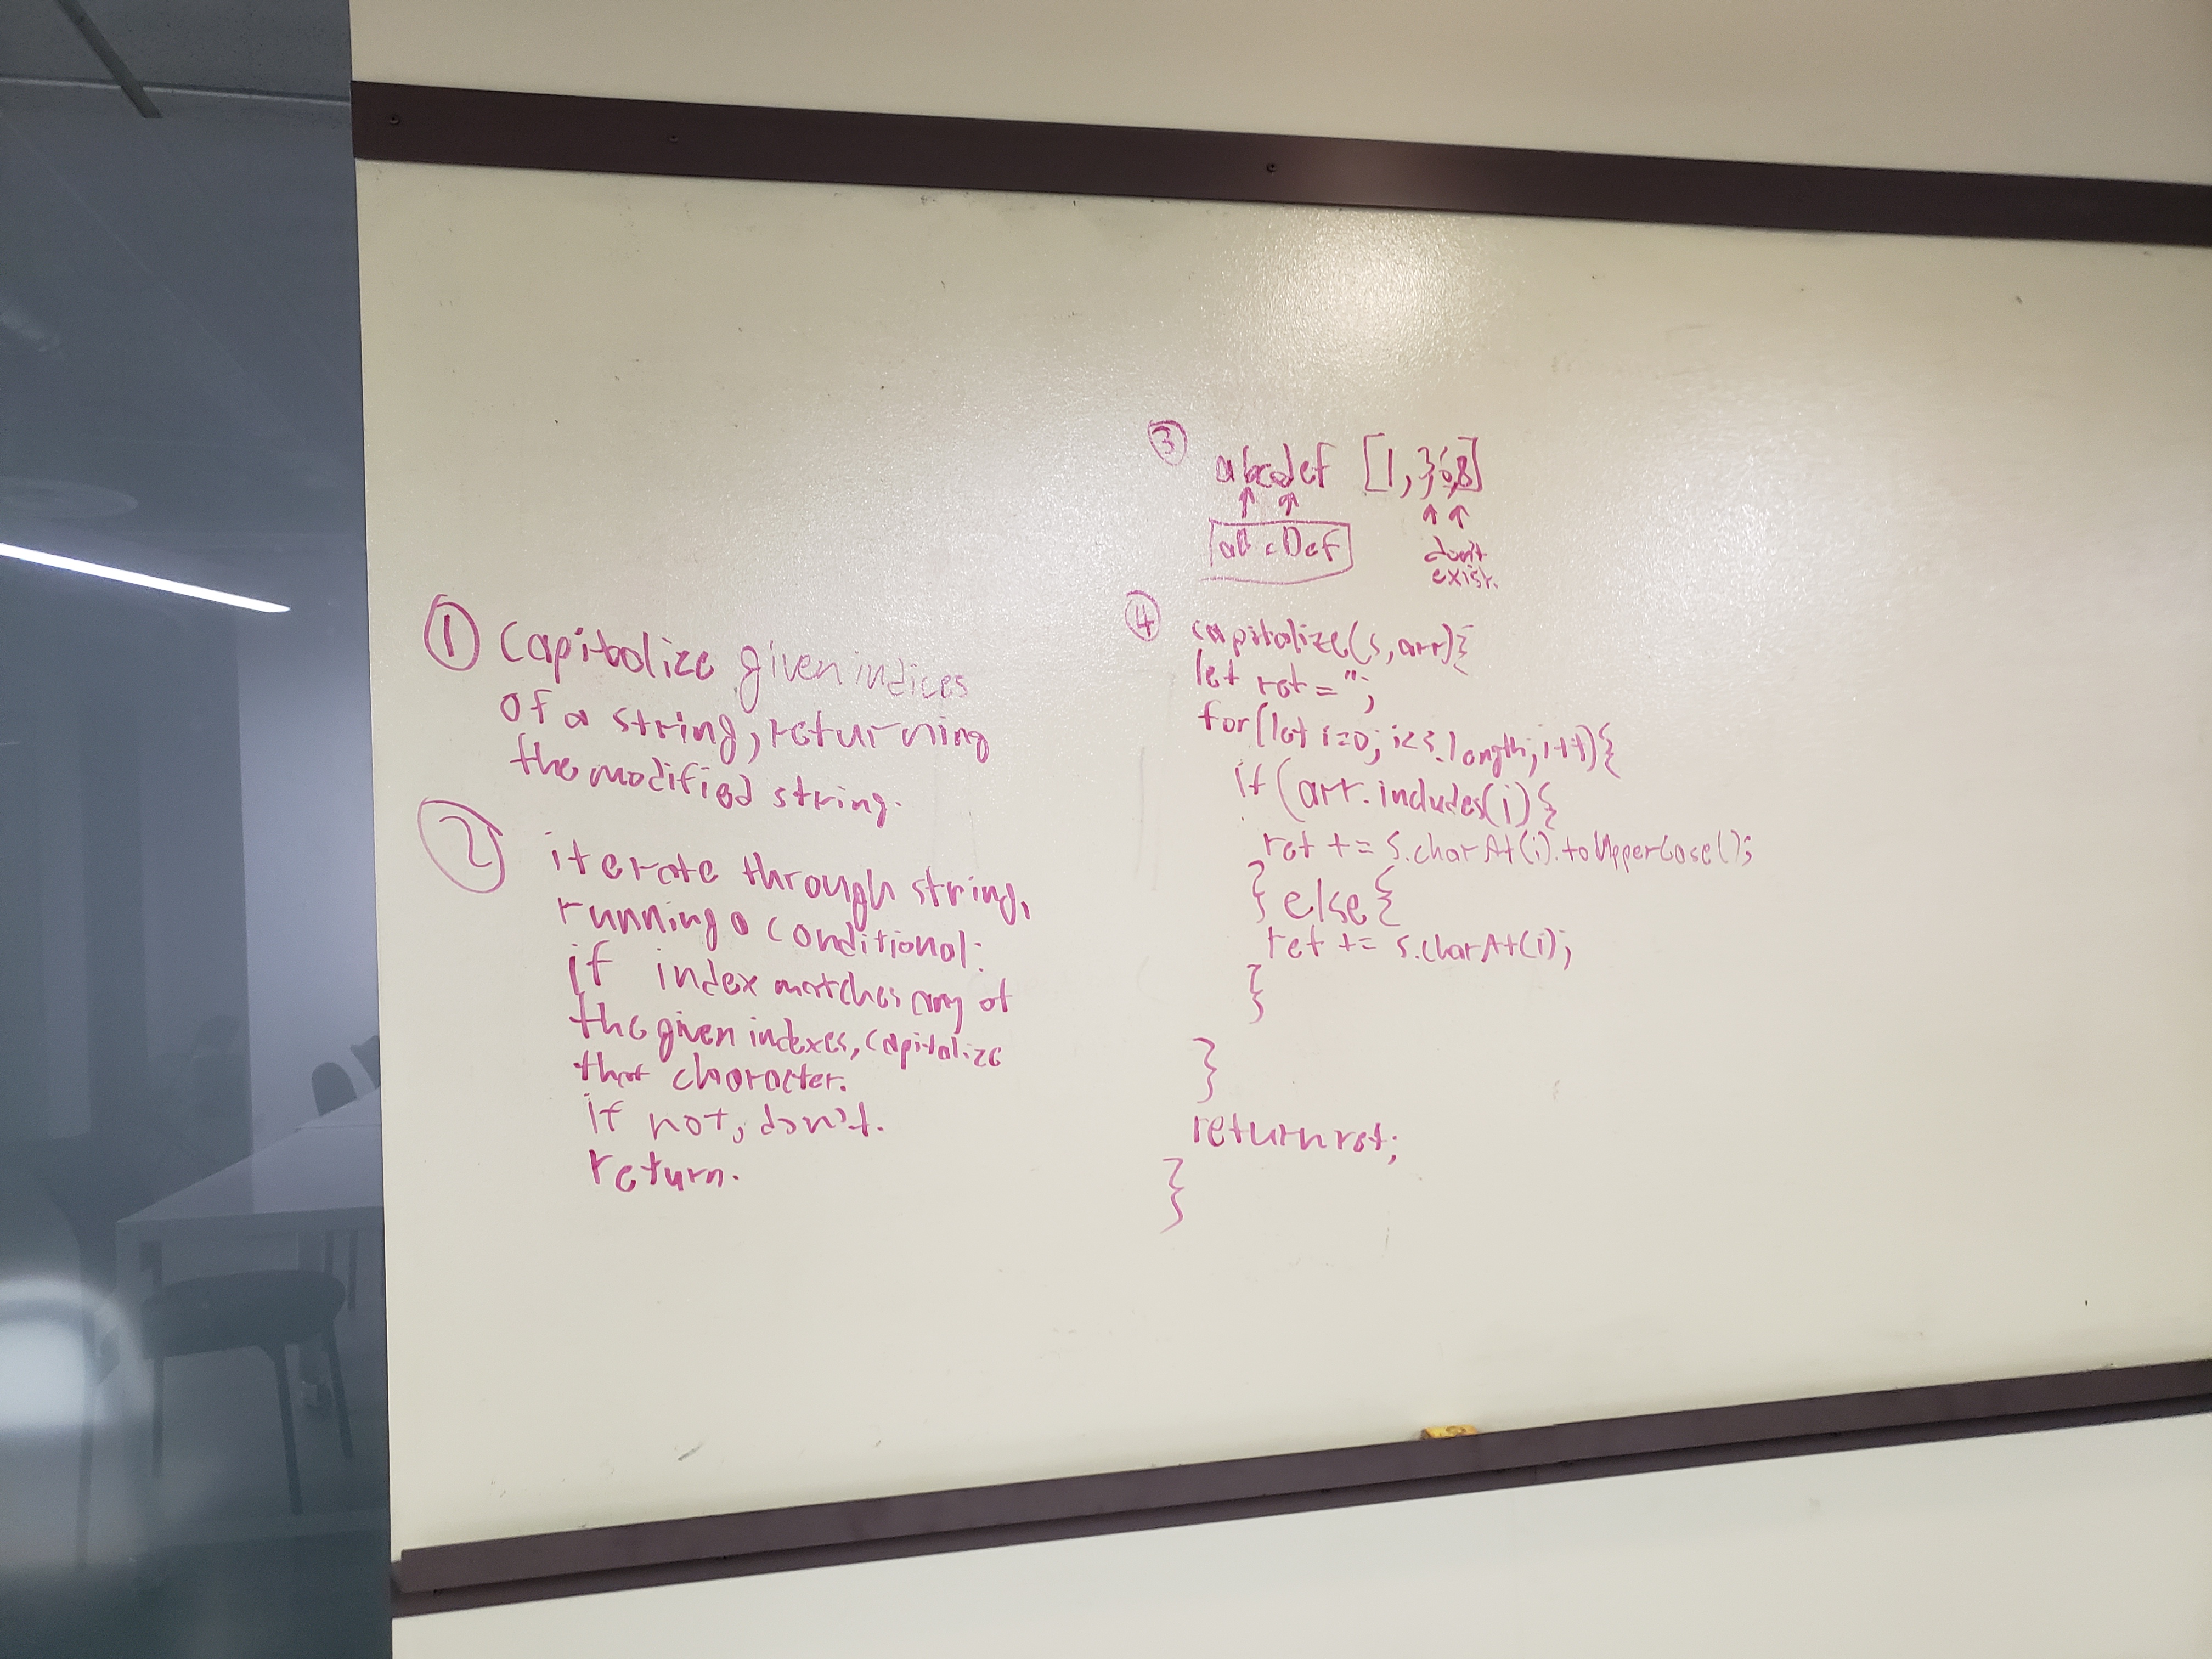 ① Capitalize given indices
of a string, returning
the modified string.
② iterate through string,
running a conditional:
if index matches any of
the given indexes, capitalize
that character.
if not, don't.
return.
③ abcdef [1,3,6,8]
↑ ↑ ↑ ↑
aBcDef don't
exist.
④ capitalize(s,arr){
let ret = '';
for(let i=0; i<s.length; i++){
if (arr.includes(i){
ret += s.charAt(i).toUpperCase();
} else {
ret += s.charAt(i);
}
}
return ret;
}